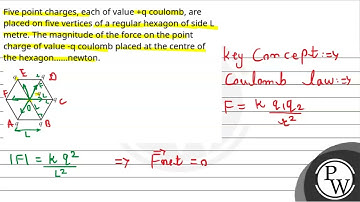 Five point charges, each of value +q coulomb, are
placed on five vertices of a regular hexagon of side L
metre. The magnitude of the force on the point
charge of value -q coulomb placed at the centre of
the hexagon......newton.
Key Concept:=>
Coulomb law:=>
F = k q1q2
r²
E
D
F
C
A
B
L
|F| = k q²
L²
=> Fnet = 0
PW